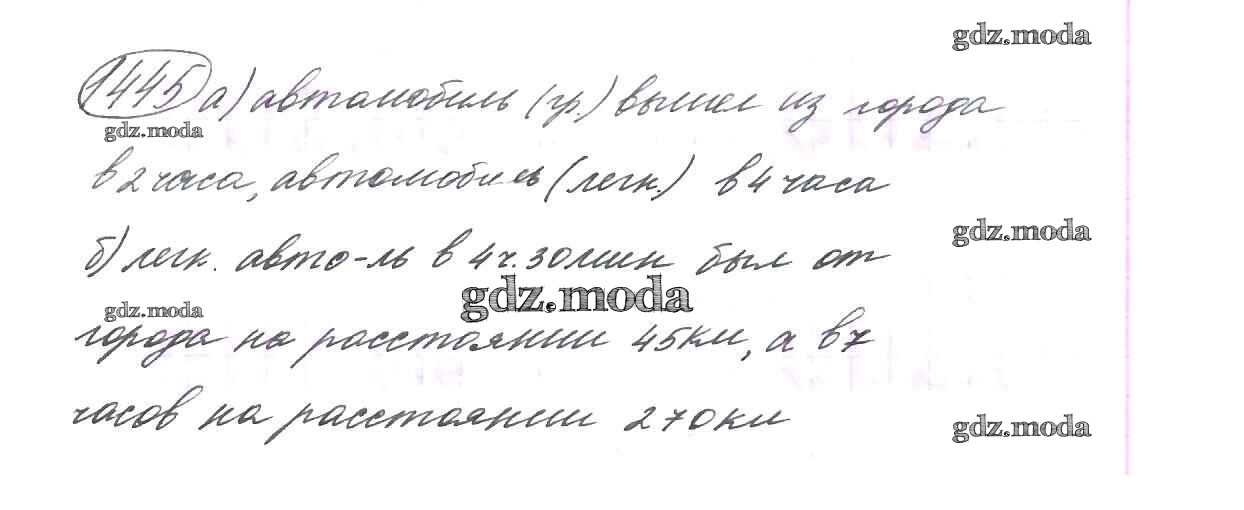 gdz.moda
1445 а) автомобиль (гр.) вышел из города
gdz.moda
в 2 часа, автомобиль (легк.) в 4 часа
gdz.moda
б) легк. авто-ль в 4 ч. 30 мин был от
gdz.moda
gdz.moda
города на расстоянии 45 км, а в 7
часов на расстоянии 270 км
gdz.moda